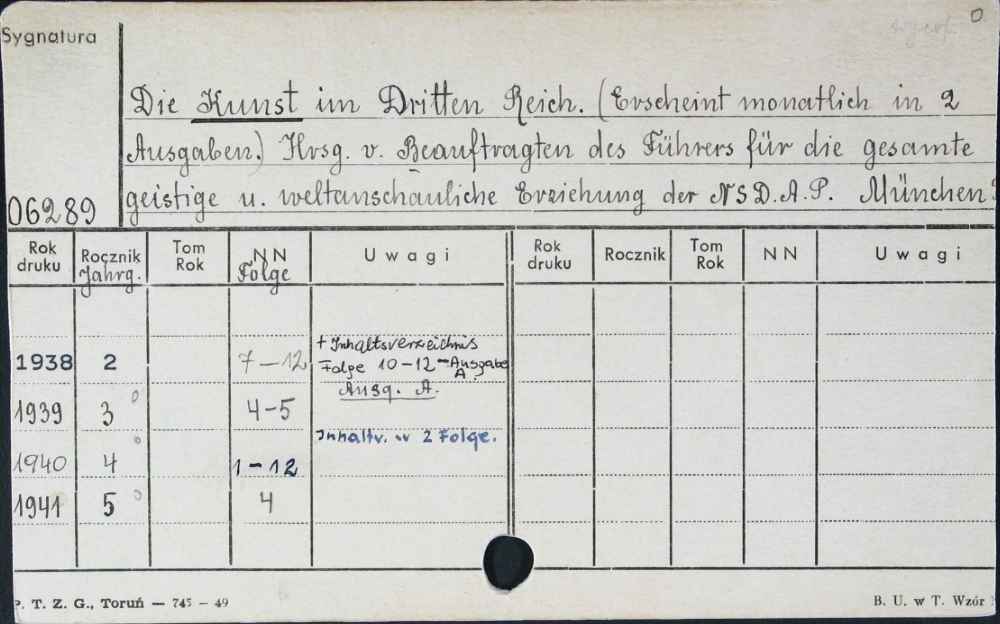 Sygnatura
O
Die Kunst im Dritten Reich. (Erscheint monatlich in 2
Ausgaben.) Hrsg. v. Beauftragten des Führers für die gesamte
geistige u. weltanschauliche Erziehung der NSD.A.P. München
06289
Rok druku Rocznik Jahrg. Tom Rok NN Folge Uwagi Rok druku Rocznik Tom Rok NN Uwagi
+ Inhaltsverzeichnis
1938 2 7-12 Folge 10-12-Ausgabe A.
Ausg. A.
1939 3 4-5
Inhaltv. w 2 Folge.
1940 4 1-12
1941 5 4
P. T. Z. G., Toruń — 745 - 49
B. U. w T. Wzór